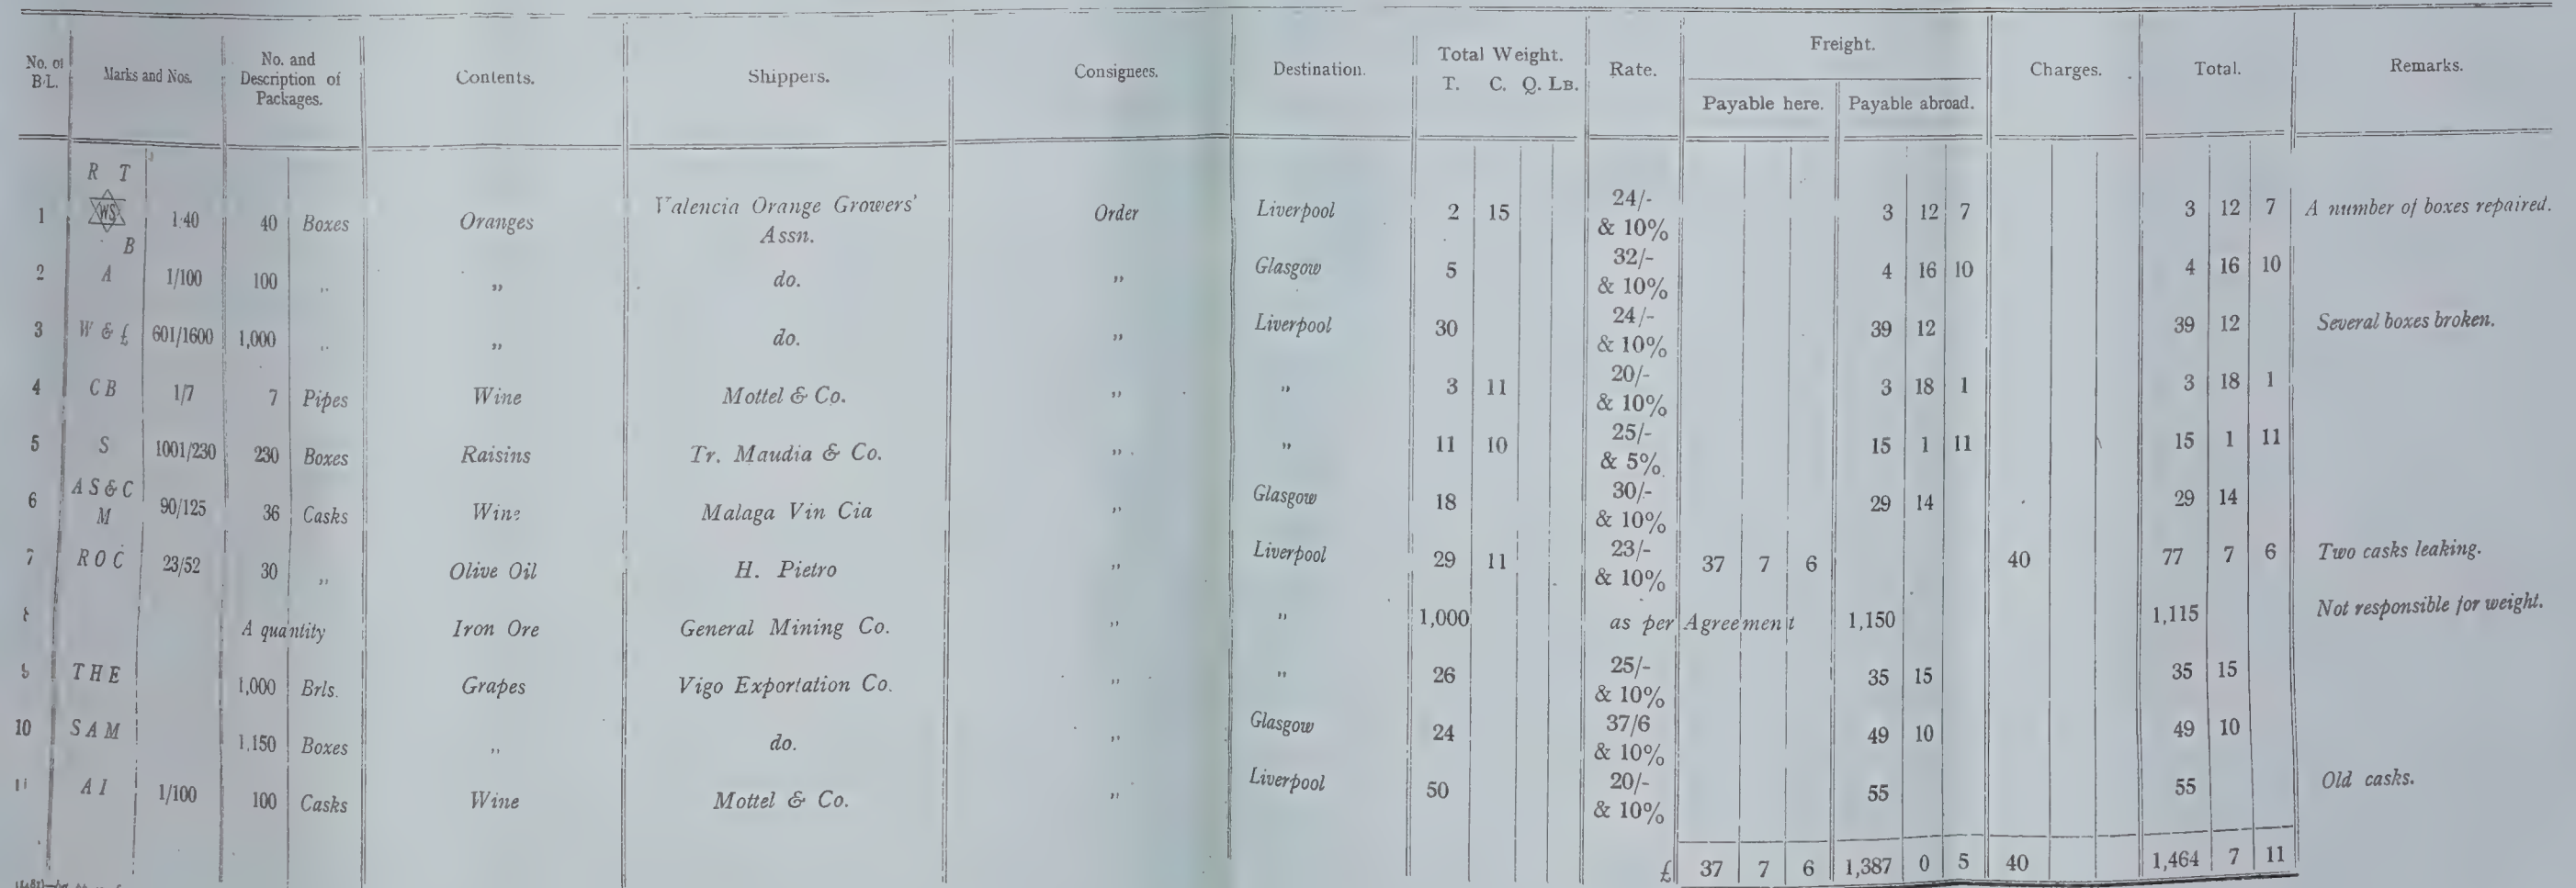 No. of B/L. Marks and Nos. No. and Description of Packages. Contents. Shippers. Consignees. Destination. Total Weight. T. C. Q. LB. Rate. Freight. Payable here. Payable abroad. Charges. Total. Remarks.
1 R T WS B 1/40 40 Boxes Oranges Valencia Orange Growers' Assn. Order Liverpool 2 15 24/- & 10% 3 12 7 3 12 7 A number of boxes repaired.
2 A 1/100 100 ,, ,, do. ,, Glasgow 5 32/- & 10% 4 16 10 4 16 10
3 W & £ 601/1600 1,000 ,, ,, do. ,, Liverpool 30 24/- & 10% 39 12 39 12 Several boxes broken.
4 C B 1/7 7 Pipes Wine Mottel & Co. ,, ,, 3 11 20/- & 10% 3 18 1 3 18 1
5 S 1001/230 230 Boxes Raisins Tr. Maudia & Co. ,, ,, 11 10 25/- & 5% 15 1 11 15 1 11
6 A S & C M 90/125 36 Casks Wine Malaga Vin Cia ,, Glasgow 18 30/- & 10% 29 14 29 14
7 R O C 23/52 30 ,, Olive Oil H. Pietro ,, Liverpool 29 11 23/- & 10% 37 7 6 40 77 7 6 Two casks leaking.
A quantity Iron Ore General Mining Co. ,, ,, 1,000 as per Agreement 1,150 1,115 Not responsible for weight.
T H E 1,000 Brls. Grapes Vigo Exportation Co. ,, ,, 26 25/- & 10% 35 15 35 15
10 S A M 1,150 Boxes ,, do. ,, Glasgow 24 37/6 & 10% 49 10 49 10
11 A I 1/100 100 Casks Wine Mottel & Co. ,, Liverpool 50 20/- & 10% 55 55 Old casks.
£ 37 7 6 1,387 0 5 40 1,464 7 11